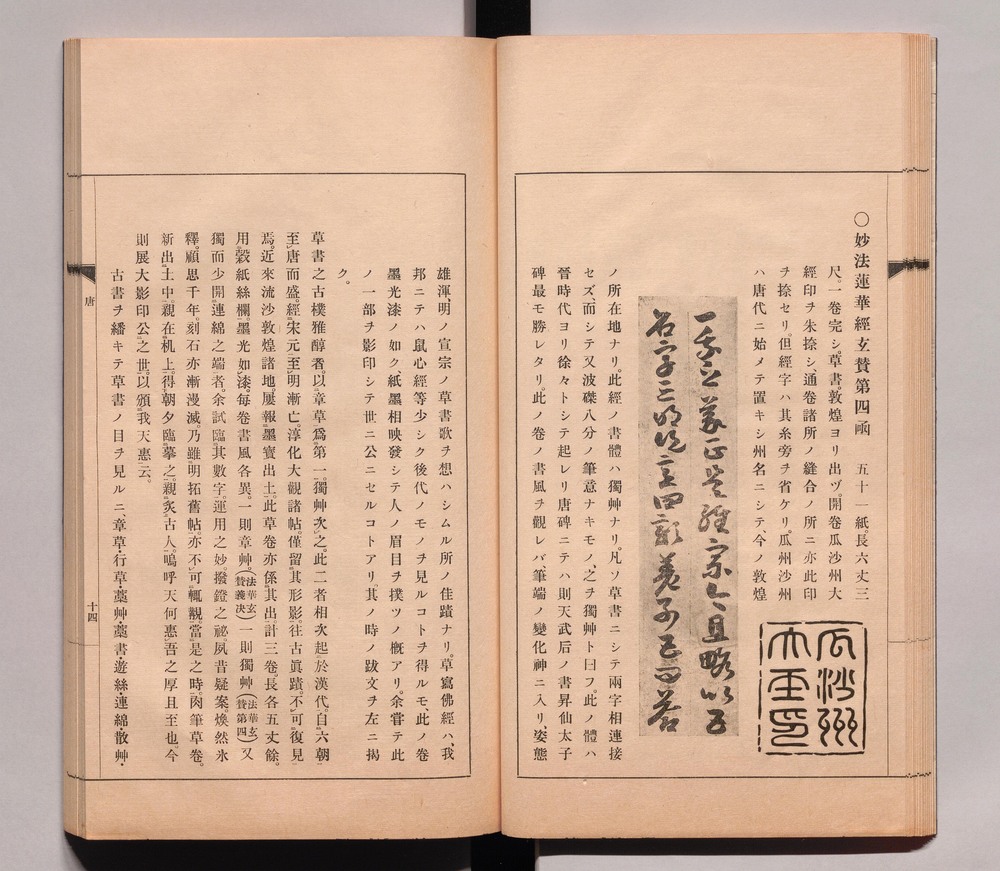 〇妙法蓮華經玄贊第四凾　五十一紙。長六丈三
尺。一卷完シ。草書。敦煌ヨリ出ヅ。開卷瓜沙州大
經印ヲ朱捺シ、通卷諸所ノ縫合ノ所ニ亦此印
ヲ捺セリ。但經字ハ其糸旁ヲ省ケリ。瓜州沙州
ハ唐代ニ始メテ置キシ州名ニシテ、今ノ敦煌
瓜沙州
大王印
ノ所在地ナリ。此經ノ書體ハ獨艸ナリ。凡ソ草書ニシテ兩字相連接
セズ、而シテ又波磔八分ノ筆意ナキモノ、之ヲ獨艸ト曰フ。此ノ體ハ
晉時代ヨリ徐々トシテ起レリ唐碑ニテハ則天武后ノ書昇仙太子
碑最モ勝レタリ。此ノ卷ノ書風ヲ觀レバ、筆端ノ變化神ニ入リ、姿態
雄渾、明ノ宣宗ノ草書歌ヲ想ハシムル所ノ佳蹟ナリ。草寫佛經ハ、我
邦ニテハ鼠心經等少シク後代ノモノヲ見ルコトヲ得ルモ、此ノ卷
墨光漆ノ如ク、紙墨相映發シテ人ノ眉目ヲ撲ツノ槪アリ。余嘗テ此
ノ一部ヲ影印シテ世ニ公ニセルコトアリ。其ノ時ノ跋文ヲ左ニ揭
ク。
草書之古樸雅醇者。以章草爲第一。獨艸次之。此二者相次起於漢代。自六朝
至唐而盛。經宋元至明漸亡。淳化大觀諸帖。僅留其形影。往古眞蹟。不可復見
焉。近來流沙敦煌諸地。屢報墨寶出土。此草卷亦係其出。計三卷。長各五丈餘。
用縠紙絲欄。墨光如漆。每卷書風各異。一則章艸(法華玄贊義決)一則獨艸(法華玄贊第四)又
獨而少開連綿之端者。余試臨其數字。運用之妙。撥鐙之祕。夙昔疑案。煥然氷
釋。顧思千年。刻石亦漸漫滅。乃雖明拓舊帖。亦不可輒觀。當是之時。肉筆草卷。
新出土中。親在机上。得朝夕臨摹之。親炙古人。嗚呼天何惠吾之厚且至也。今
則展大影印公之世。以頒我天惠云。
古書ヲ繙キテ草書ノ目ヲ見ルニ、章草・行草・藁艸・藁書・遊絲・連綿・散艸・
唐
十四